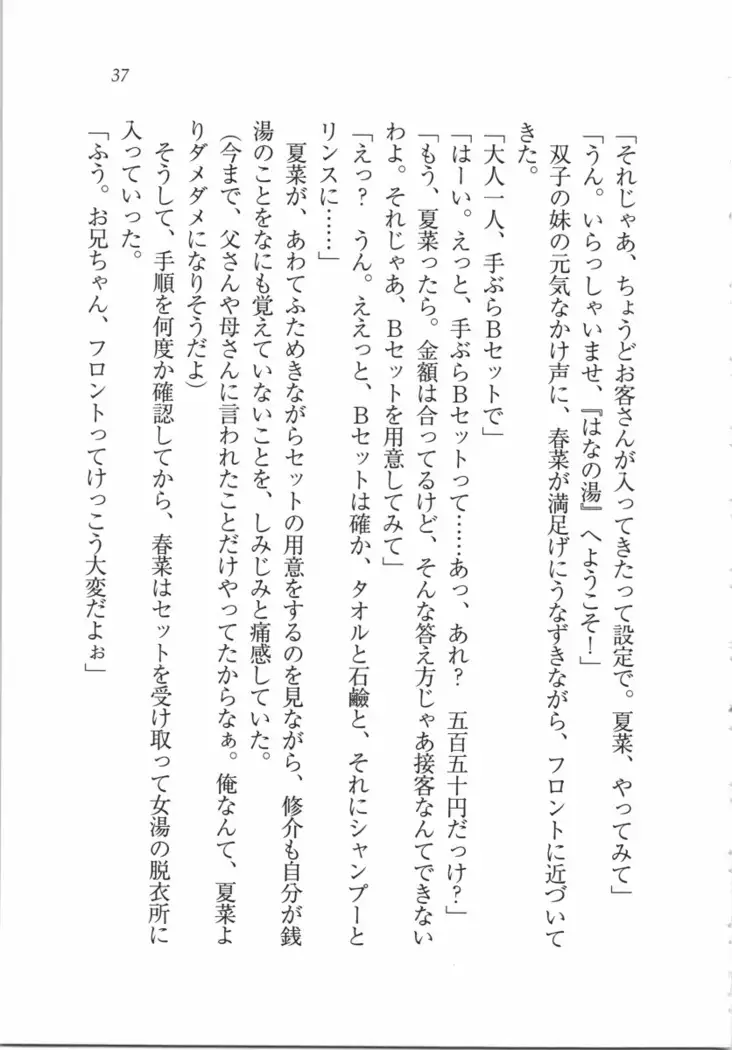 「それじゃあ、ちょうどお客さんが入ってきたって設定で。夏菜、やってみて」
「うん。いらっしゃいませ、『はなの湯』へようこそ！」
　双子の妹の元気なかけ声に、春菜が満足げにうなずきながら、フロントに近づいて
きた。
「大人一人、手ぶらＢセットで」
「はーい。えっと、手ぶらＢセットって……あっ、あれ？　五百五十円だっけ？」
「もう、夏菜ったら。金額は合ってるけど、そんな答え方じゃあ接客なんてできない
わよ。それじゃあ、Ｂセットを用意してみて」
「えっ？　うん。ええっと、Ｂセットは確か、タオルと石鹼と、それにシャンプーと
リンスに……」
　夏菜が、あわてふためきながらセットの用意をするのを見ながら、修介も自分が銭
湯のことをなにも覚えていないことを、しみじみと痛感していた。
（今まで、父さんや母さんに言われたことだけやってたからなぁ。俺なんて、夏菜よ
りダメダメになりそうだよ）
　そうして、手順を何度か確認してから、春菜はセットを受け取って女湯の脱衣所に
入っていった。
「ふう。お兄ちゃん、フロントってけっこう大変だよぉ」
37